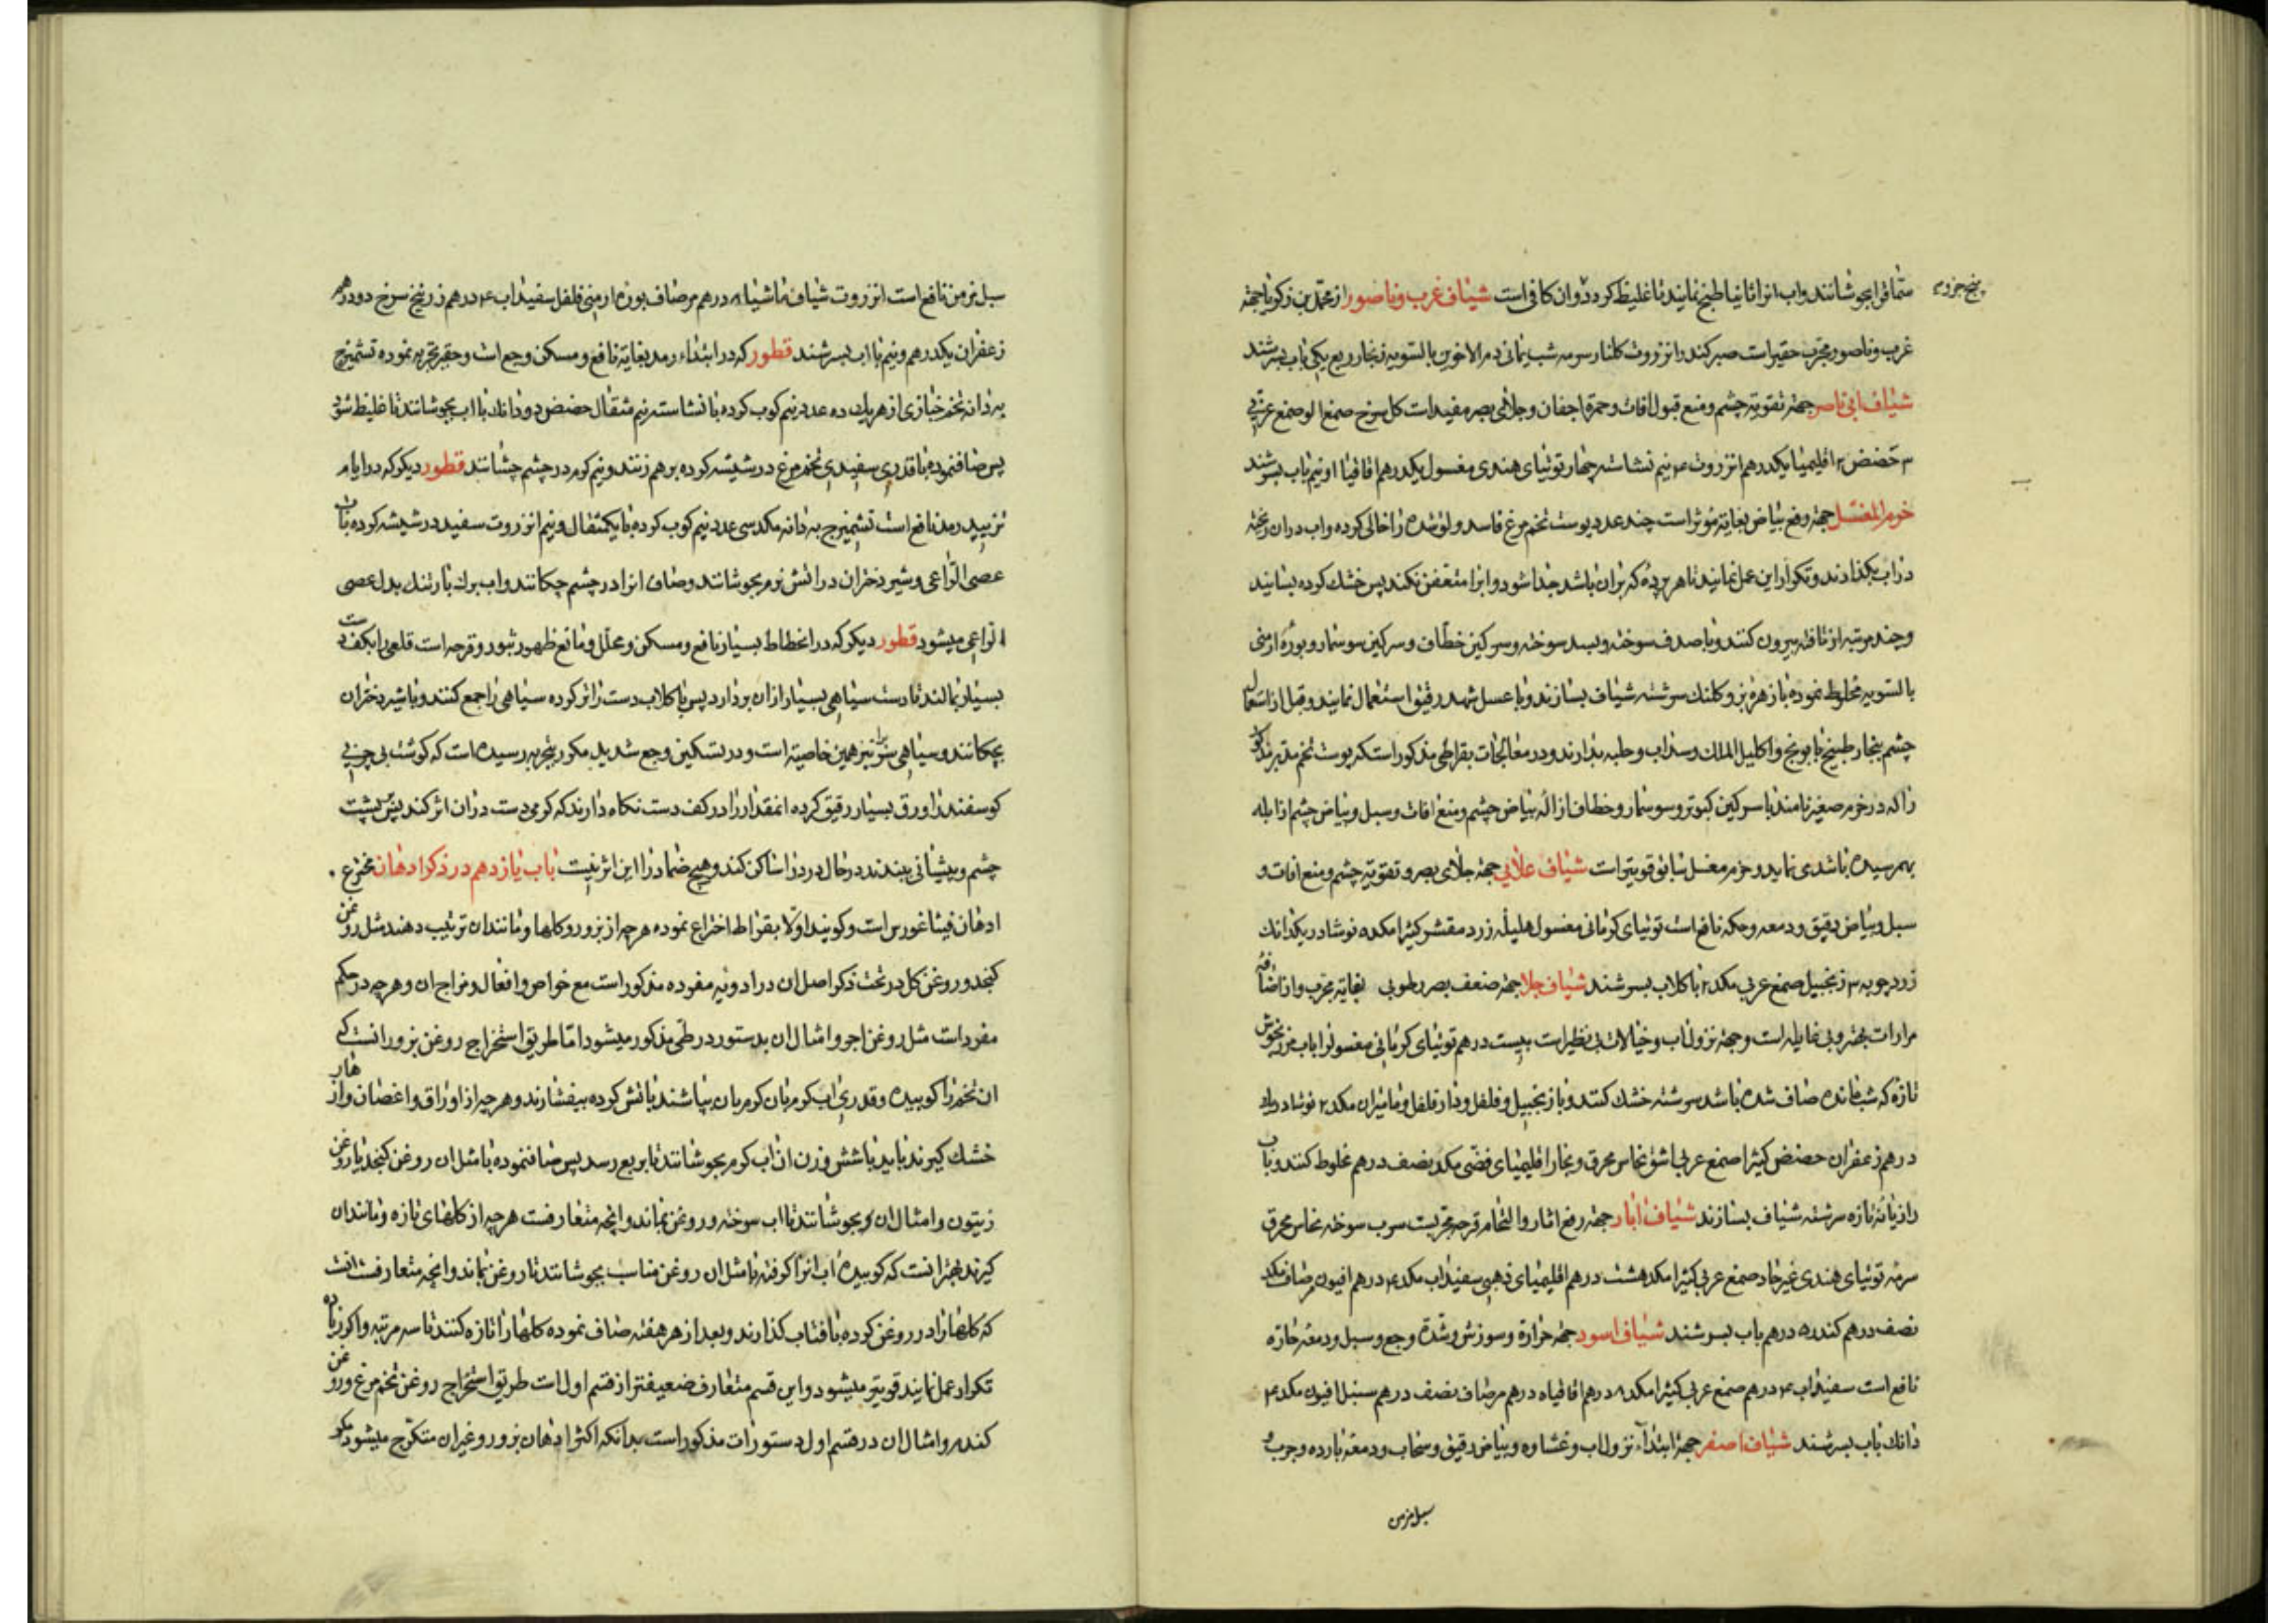 پنج جزو
متماثرا بجوشانند واب انرا ثانیا طبخ نمایند تا غلیظ کردد وان کافی است شیاف غرب وناصور از محمد بن زکریا جهة
غرب وناصور مجرب حقیر است صبر کندر انزروت کلنار سرمه شب یمانی دم الاخوین بالسویه زنجار ربع یکی باب بسرشند
شیاف جهة تقویة چشم ومنع قبول افات وحمرة اجفان وجلای بصر مفید است کل سرخ صمغ الو صمغ عربی
۳ حضض ۲ اقلیمیا یکدرهم انزروت ۲ نیم نشاسته چهار توتیای هندی مغسول یکدرهم اقاقیا ا ونیم باب بسرشند
جهة رفع بیاض بغایة مؤثر است چند عدد پوست تخم مرغ فاسد ولوثیده را خالی کرده واب دران ریخته
دراب بکذارند وتکرار این عمل نمایند تا هر پرده که بران باشد جدا شود وانرا متعفن نکند پس خشک کرده بسایند
وچند مرتبه از تافته بیرون کنند وبا صدف سوخته وبسد سوخته وسرکین خطاف وسرکین سوسمار وبوره ارمنی
بالسویه مخلوط نموده با زهره بز وکلنک سرشته شیاف بسازند وبا عسل شهد رقیق استعمال نمایند وقبل از استعمال
چشم ببخار طبیخ بابونج واکلیل الملک وسداب وحلبه بدارند ودر معالجات بقراطی مذکور است که پوست تخم مدبر مذکور
را که در خرم صغیر نامند با سرکین کبوتر وسوسمار وخطاف ازاله بیاض چشم ومنع افات وسبل وبیاض چشم از ابله
بهم رسیده باشد می نماید وخرم مغسل سابق قویتر است شیاف علائی جهة جلای بصر وتقویة چشم ومنع افات و
سبل وبیاض رقیق ودمعه وحکه نافع است توتیای کرمانی مغسول هلیله زرد مقشر کتیرا مکده نوشادر یکدانک
زردچوبه ۳ زنجبیل صمغ عربی مکد ۲ با کلاب بسرشند شیاف جلا جهة ضعف بصر رطوبی بغایة مجرب واز اضافه
مرارات بهتر وبی غایله است وجهة نزول اب وخیالات بی نظیر است بیست درهم توتیای کرمانی مغسول را باب مرزنجوش
تازه که شب مانده صاف شده باشد سرشته خشک کنند وباز زنجبیل وفلفل ودارفلفل ومامیران مکد ۲ نوشادر
درهم زعفران حضض کتیرا صمغ عربی اشق نحاس محرق وبخار اقلیمیای فضی مکد نصف درهم مخلوط کنند وباب
رازیانه تازه سرشته شیاف بسازند شیاف ابار جهة رفع اثار والتحام قرحه مجربست سرب سوخته نحاس محرق
سرمه توتیای هندی غیر حاد صمغ عربی کتیرا مکد هشت درهم اقلیمیای ذهبی سفیداب مکد ۴ درهم افیون مرصاف مکد
نصف درهم کندر ۵ درهم باب بسرشند شیاف اسود جهة حرارة وسوزش وشدة وجع وسبل ودمعه حاره
نافع است سفیداب ۴ درهم صمغ عربی کتیرا مکد ۸ درهم اقاقیا ۵ درهم مرصاف نصف درهم سنبل افیون مکد ۴
دانک باب بسرشند شیاف اصفر جهة ابتداء نزول اب وغشاوه وبیاض رقیق وسحاب ودمعة بارده وجرب و
سبل مزمن
سبل مزمن نافع است انزروت شیاف مامیثا ۸ درهم مرصاف بوره ارمنی فلفل سفیداب ۴ درهم زرنیخ سرخ دو درهم
زعفران یکدرهم ونیم با اب بسرشند قطور که در ابتداء رمد بغایة نافع ومسکن وجع است وحقیر تجربه نموده تشمیزج
به دانه تخم خبازی از هریک ده عدد نیم کوب کرده با نشاسته نیم مثقال حضض دو دانک با اب بجوشانند تا غلیظ شود
پس صاف نموده با قدری سفیدی تخم مرغ در شیشه کرده برهم زنند ونیم کرم در چشم چشانند قطور دیکر که در ایام
تزیید رمد نافع است تشمیزج به دانه مکد سی عدد نیم کوب کرده با یکمثقال ونیم انزروت سفید در شیشه کرده باب
عصی الراعی وشیر دختران در اتش نرم بجوشانند وصاف انرا در چشم چکانند واب برک بارتنک بدل عصی
الراعی میشود قطور دیکر که در انحطاط بسیار نافع ومسکن ومحلل ومانع ظهور بثور وقرحه است قلعی را بکف دست
بسیار بمالند تا دست سیاهی بسیار از ان بردارد پس با کلاب دست را تر کرده سیاهی را جمع کنند وبا شیر دختران
بچکانند وسیاهی سرب را نیز همین خاصیة است ودر تسکین وجع شدید مکرر بتجربه رسیده است که کوشت بی چربی
کوسفند را ورق بسیار رقیق کرده انمقدار را در کف دست نکاه دارند که کرمی دست دران اثر کند پس بپشت
چشم وپیشانی ببندند در حال درد را ساکن کند وهیچ ضماد را این اثر نیست باب یازدهم در ذکر ادهان مخترع
ادهان فیثاغورس است وکویند اولا بقراط اختراع نموده هرچه از بزور وکلها ومانند ان ترتیب دهند مثل روغن
کنجد وروغن کل در تحت ذکر اصل ان در ادویه مفرده مذکور است مع خواص وافعال ومزاج ان وهرچه در حکم
مفردات است مثل روغن اجر وامثال ان بدستور در طی مذکور میشود اما طریق استخراج روغن بزور انست که
ان تخم را کوبیده وقدری اب کرم بان کرم بان بپاشند باتش کرده بیفشارند وهرچه از اوراق واغصان وازهار
خشک کیرند باید با شش وزن ان اب کرم بجوشانند تا بربع رسد پس صاف نموده با مثل ان روغن کنجد یا روغن
زیتون وامثال ان بجوشانند تا اب سوخته وروغن بماند وانچه متعارفست هرچه از کلهای تازه ومانند ان
کیرند بهتر انست که کوبیده اب انرا کرفته با مثل ان روغن مناسب بجوشانند تا روغن بماند وانچه متعارفست انست
که کلها را در روغن کرده بافتاب کذارند وبعد از هر هفته صاف نموده کلها را تازه کنند تا سه مرتبه واکر زیاده
تکرار عمل نمایند قویتر میشود واین قسم متعارف ضعیفتر از قسم اول است طریق استخراج روغن تخم مرغ وروغن
کندم وامثال ان در قسم اول دستورات مذکور است بدانکه اکثر ادهان بزور وغیر ان متکرج میشود مکر